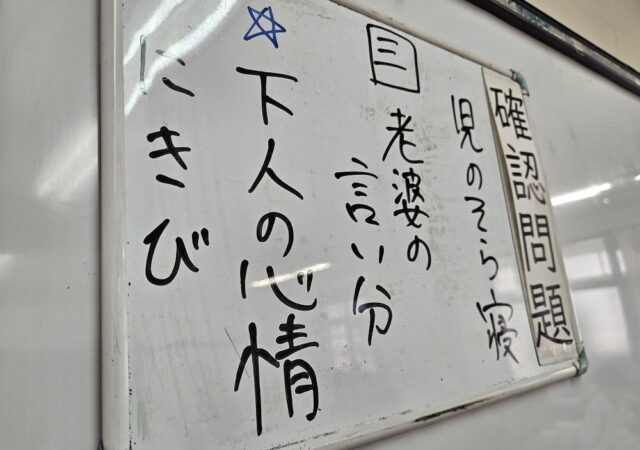 確認問題
児のそら寝
三
老婆の
言い分
☆下人の心情
にきび